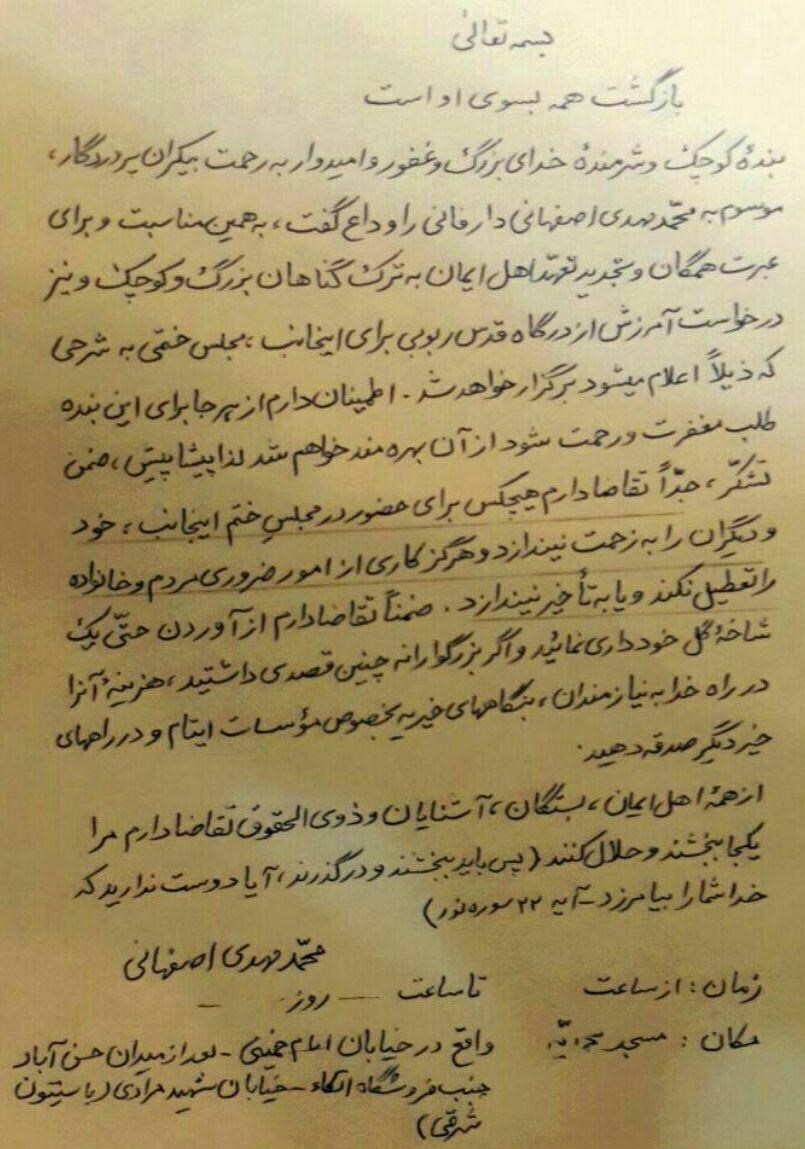 بسمه تعالی
بازگشت همه بسوی او است
بندهٔ کوچک و شرمندهٔ خدای بزرگ و غفور و امیدوار به رحمت بیکران پروردگار،
موسوم به محمّدمهدی اصفهانی دار فانی را وداع گفت، به همین مناسبت و برای
عبرت همگان و تجدید تعهّد اهل ایمان به ترک گناهان بزرگ و کوچک و نیز
درخواست آمرزش از درگاه قدس ربوبی برای اینجانب، مجلس ختمی به شرحی
که ذیلاً اعلام میشود برگزار خواهد شد. اطمینان دارم از هر جا برای این بنده
طلب مغفرت و رحمت شود از آن بهره مند خواهم شد لذا پیشاپیش، ضمن
تشکّر، جدّاً تقاضا دارم هیچکس برای حضور در مجلس ختم اینجانب، خود
و دیگران را به زحمت نیندازد و هرگز کاری از امور ضروری مردم و خانواده
را تعطیل نکند و یا به تأخیر نیندازد. ضمناً تقاضا دارم از آوردن حتّی یک
شاخهٔ گل خودداری نمائید و اگر بزرگوارانه چنین قصدی داشتید، هزینهٔ آنرا
در راه خدا به نیازمندان، بنگاههای خیریه بخصوص مؤسسات ایتام و در راههای
خیر دیگر صدقه دهید.
از همهٔ اهل ایمان، بستگان، آشنایان و ذوی الحقوق تقاضا دارم مرا
یکجا ببخشند و حلال کنند (پس باید ببخشند و درگذرند، آیا دوست ندارید که
خدا شما را بیامرزد - آیه ۲۲ سوره نور)
محمّدمهدی اصفهانی
زمان: از ساعت تا ساعت — روز — –
مکان: مسجد واقع در خیابان امام خمینی - بعد از میدان حسن آباد
جنب فروشگاه اتکاء - خیابان شهید مرادی (باستیون
شرقی)